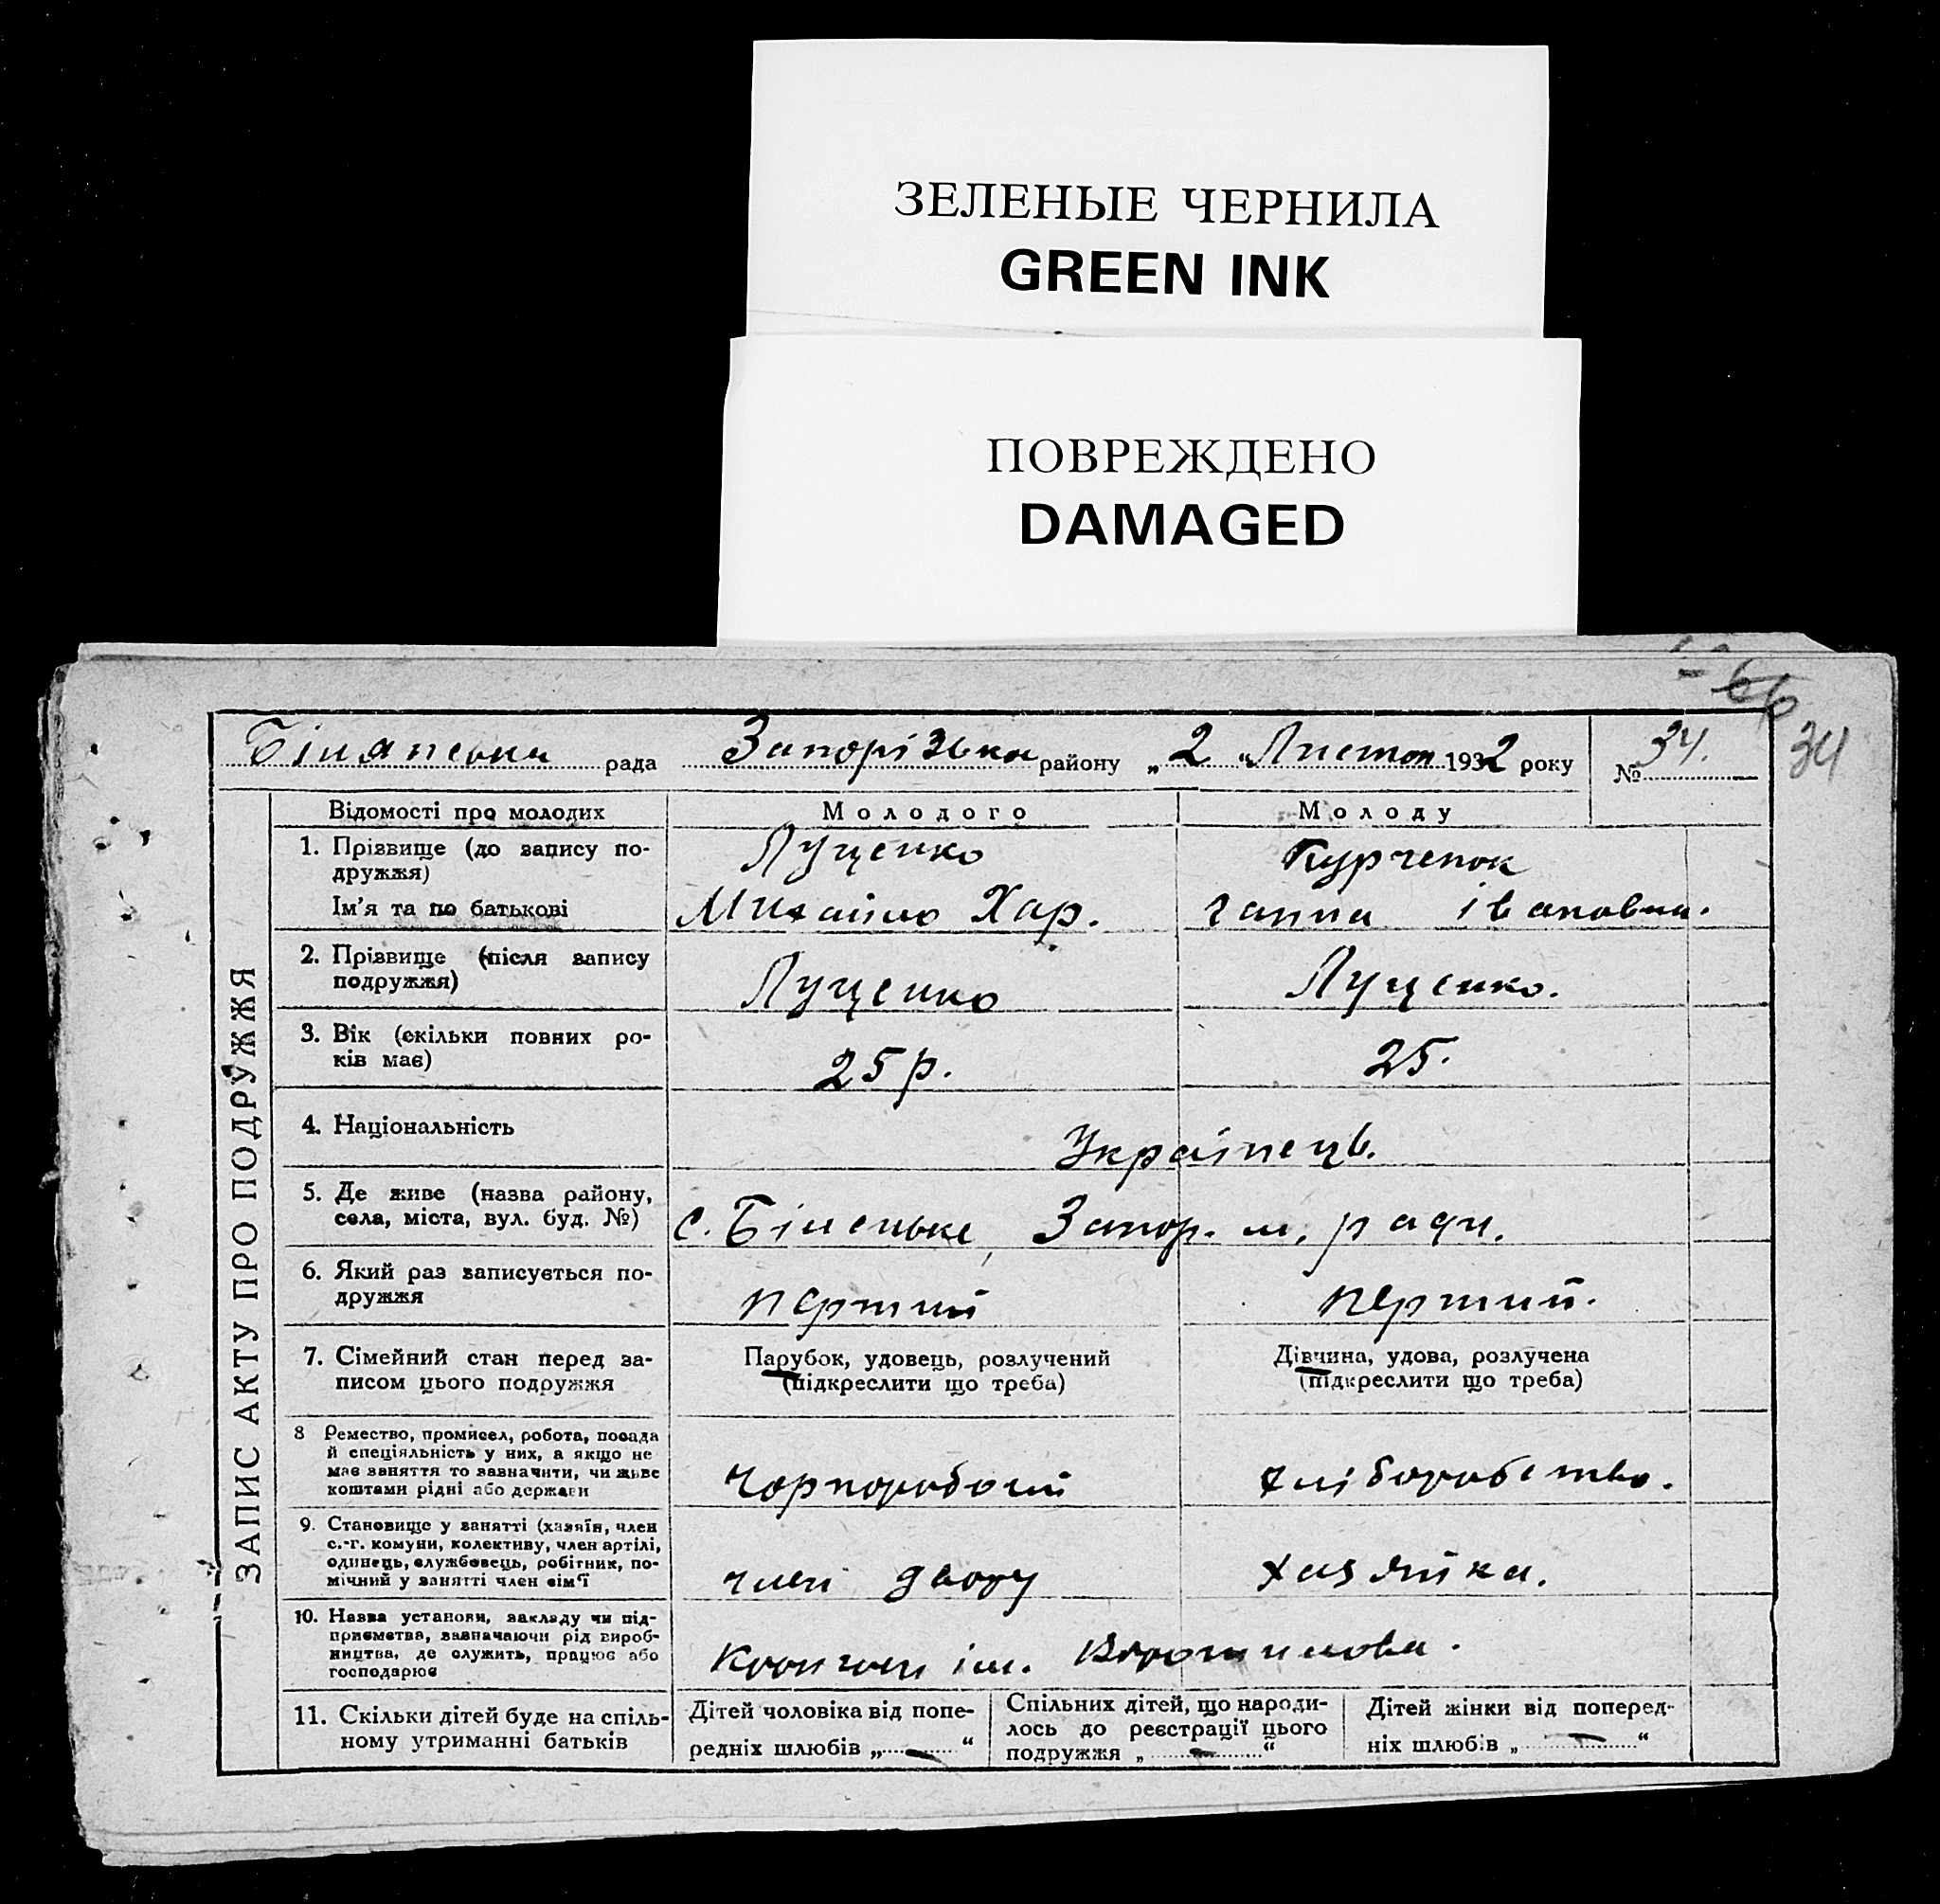 ЗЕЛЕНЫЕ ЧЕРНИЛА
GREEN INK
ПОВРЕЖДЕНО
DAMAGED
66
34
рада Запорізька району „2“ Листоп 1932 року № 34.
ЗАПИС АКТУ ПРО ПОДРУЖЖЯ
Відомості про молодих Молодого Молоду
1. Прізвище (до запису по-
дружжя)
Луценко
Ім'я та по батькові
Михайло Хар. Ганна Івановна.
2. Прізвище (після запису
подружжя)
Луценко Луценко.
3. Вік (скільки повних ро-
ків має)
25 р. 25.
4. Національність
Українець.
5. Де живе (назва району,
села, міста, вул. буд. №)
с. Біленьке, Запор. м. ради.
6. Який раз записується по-
дружжя
перший перший.
7. Сімейний стан перед за-
писом цього подружжя
Парубок, удовець, розлучений
(підкреслити що треба)
Дівчина, удова, розлучена
(підкреслити що треба)
8 Ремество, промисел, робота, посада
й спеціяльність у них, а якщо не
має заняття то зазначити, чи живе
коштами рідні або держави
чорноробочий хліборобство.
9. Становище у занятті (хазяїн, член
с.-г. комуни, колективу, член артілі,
одинець, службовець, робітник, по-
мічний у занятті член сім'ї
член двору хазяйка.
10. Назва установи, закладу чи під-
приємства, зазначаючи рід вироб-
ництва, де служить, працює або
господарює
ім. Ворошилова.
11. Скільки дітей буде на спіль-
ному утриманні батьків
Дітей чоловіка від попе-
редніх шлюбів „ — “
Спільних дітей, що народи-
лось до реєстрації цього
подружжя „ — “
Дітей жінки від поперед-
ніх шлюбів „ — “